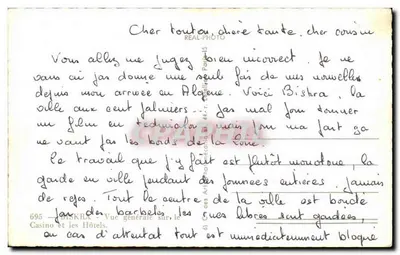 Cher tonton, chère tante, cher cousin
REAL-PHOTO
Vous allez me jugez bien incorrect. Je ne
vous ai pas donné une seule fois de mes nouvelles
depuis mon arrivée en Algérie. Voici Biskra, la
ville aux cent palmiers... pas mal pour tourner
un film en technicolor mais pour ma part ça
ne vaut pas les bords de la
Le travail que j'y fait est plutôt monotone, la
garde en ville pendant des journées entières. Jamais
de repos. Tout le centre de la ville est bouclé
695 BISKRA - Vue générale sur le
Casino et les Hôtels.
par des barbelés, les rues libres sont gardées,
en cas d'attentat tout est immédiatement bloqué